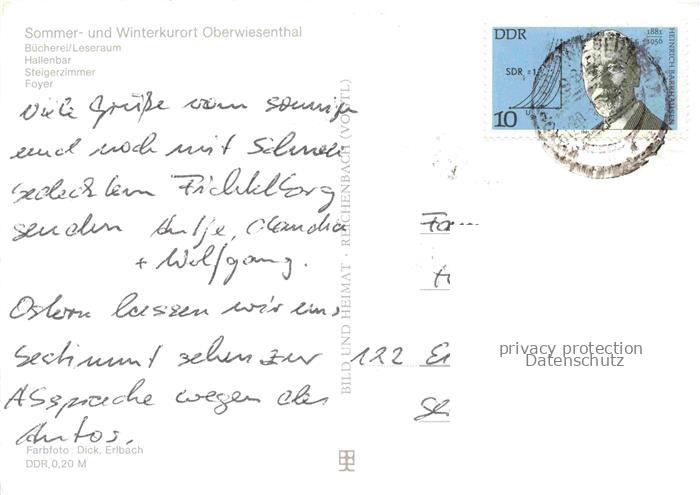 Sommer- und Winterkurort Oberwiesenthal
Bücherei/Leseraum
Hallenbar
Steigerzimmer
Foyer
Viele Grüße vom sonnigen
und noch mit Schnee
bedecktem Fichtelberg
senden Antje, Claudia
+ Wolfgang.
Ostern lassen wir uns
bestimmt sehen zur
Absprache wegen des
Autos.
Farbfoto: Dick, Erlbach
DDR 0,20 M
BILD UND HEIMAT · REICHENBACH (VOGTL)
DDR
1881
1956
HEINRICH BARKHAUSEN
SDRi = 1
10
Fam
122
privacy protection
Datenschutz